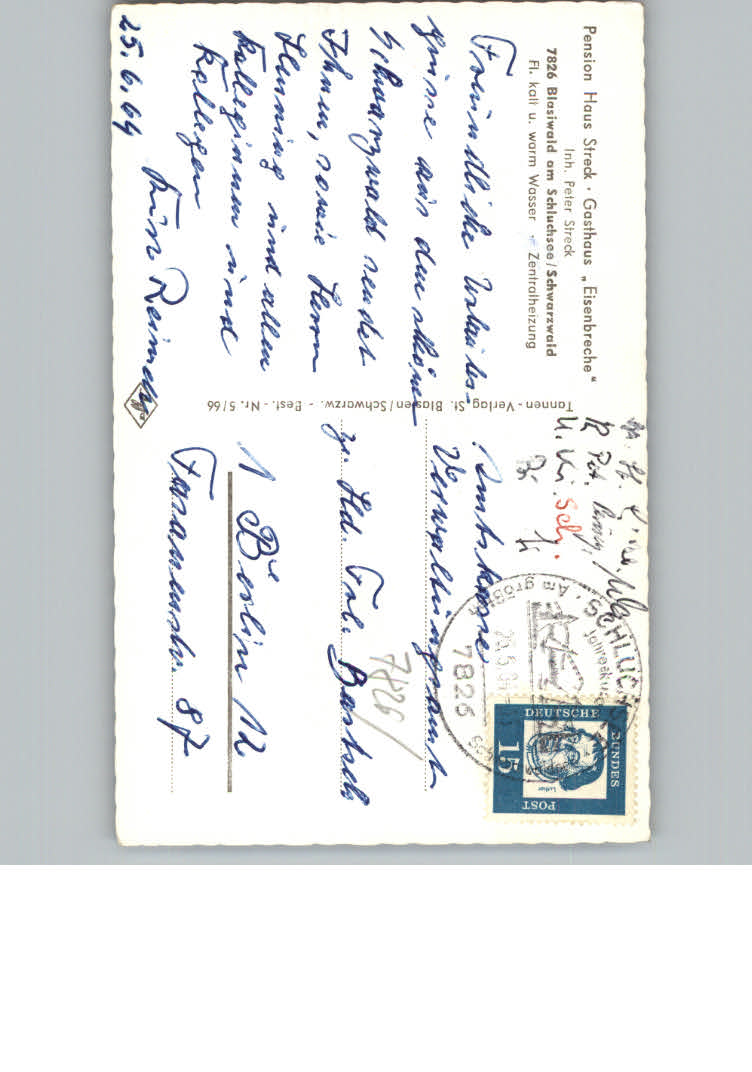 Pension Haus Streck · Gasthaus „Eisenbreche"
Inh. Peter Streck
7826 Blasiwald am Schluchsee/Schwarzwald
Fl. kalt u. warm Wasser - Zentralheizung
Freundliche Urlaubs-
grüsse aus dem schönen
Schwarzwald sendet
Ihnen, sowie Herrn
Henning und allen
Kolleginnen und
Kollegen
25.6.69
Tannen-Verlag St. Blasien/Schwarzw. - Best.-Nr. 5/66
Sch.
Amtskasse
Verwaltungsamt
z. Hd. Frl. Bartsch
1 Berlin 12
Fasanenstr. 87
7826
SCHLUCHSEE
Am größten
7826
DEUTSCHE
BUNDES
POST
15
Luther